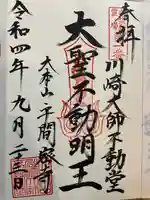 奉拝
川崎大師不動堂
大聖不動明王
大本山平間寺
令和四年九月二三日